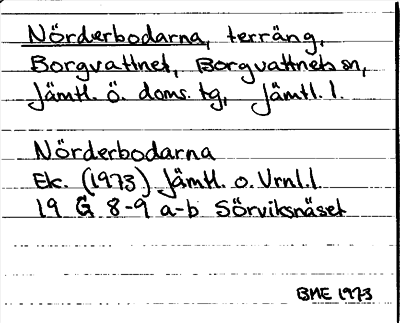 Nörderbodarna, terräng,
Borgvattnet, Borgvattnets sn,
Jämtl. ö. doms. tg, Jämtl. l.
Nörderbodarna
Ek. (1973) Jämtl. o. Vrnl. l.
19 G 8-9 a-b Sörviksnäset
BME 1973